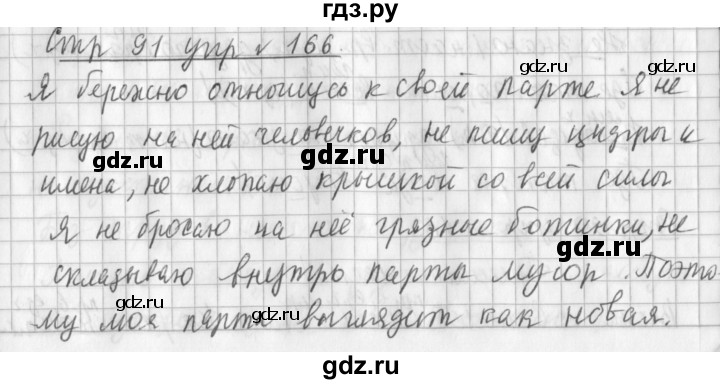 гдз.ру
Стр 91 упр № 166.
Я бережно отношусь к своей парте Я не
рисую на ней человечков, не пишу цифры и
gdz.ru gdz.ru
имена, не хлопаю крышкой со всей силы
Я не бросаю на неё грязные ботинки, не
gdz.ru
складываю внутрь парты мусор. Поэто
gdz.ru
му моя парта выглядит как новая.
gdz.ru